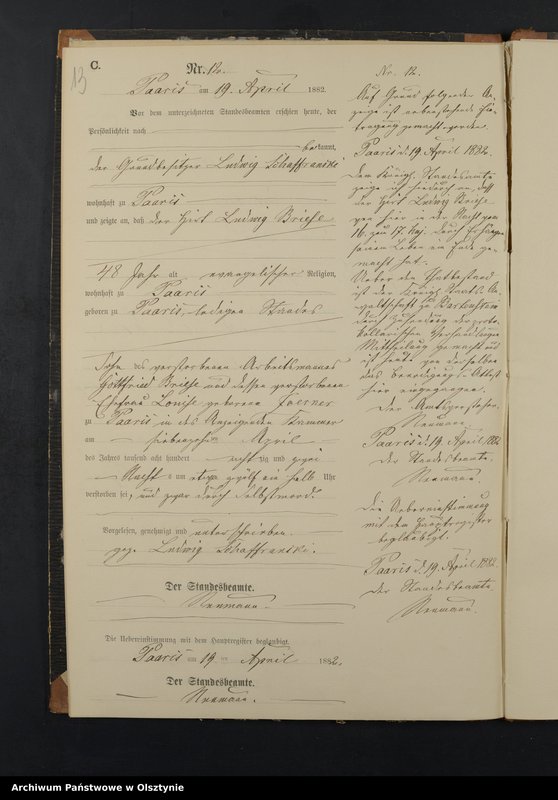 13
C.
Nr. 12.
Paaris am 19 April 1882.
Vor dem unterzeichneten Standesbeamten erschien heute, der
Persönlichkeit nach
bekannt,
der Grundbesitzer Ludwig Schaffranski
wohnhaft zu Paaris
und zeigte an, daß der Hirt Ludwig Briese
48 Jahr alt evangelischer Religion,
wohnhaft zu Paaris
geboren zu Paaris, ledigen Standes
Sohn des verstorbenen Arbeitsmannes
Gottfried Briese und dessen verstorbenen
Ehefrau Louise geborene
zu Paaris in des Anzeigenden Kammer
am siebenzehnten April
des Jahres tausend acht hundert achtzig und zwei
Nachts um etwa zwölf ein halb Uhr
verstorben sei, und zwar durch Selbstmord.
Vorgelesen, genehmigt und unterschrieben.
gez. Ludwig Schaffranski.
Der Standesbeamte.
Neumann.
Die Uebereinstimmung mit dem Hauptregister beglaubigt.
Paaris am 19 ten April 1882.
Der Standesbeamte.
Neumann.
Nr. 12.
Auf Grund folgender An-
zeige ist nebenstehende Ein-
tragung gemacht worden.
Paaris d. 19. April 1882.
Dem Königl. Standesamte
zeige ich hierdurch an, daß
der Hirt Ludwig Briese
hier in der Nacht vom
16. zum 17. durch Erhängen
seinem Leben ein Ende ge-
macht hat.
Ueber den Thatbestand
ist der Königl. Staats-An-
waltschaft zu Bartenstein
durch der proto-
kollarischen Verhandlungen
Mittheilung gemacht und
ist heute von derselben
das Beerdigungs-Attest
hier eingegangen.
Der Amtsvorsteher.
Neumann.
Paaris d. 19. April 1882.
Der Standesbeamte.
Neumann.
Die Uebereinstimmung
mit dem Hauptregister
beglaubigt.
Paaris d. 19. April 1882.
Der Standesbeamte
Neumann.
Archiwum Państwowe w Olsztynie